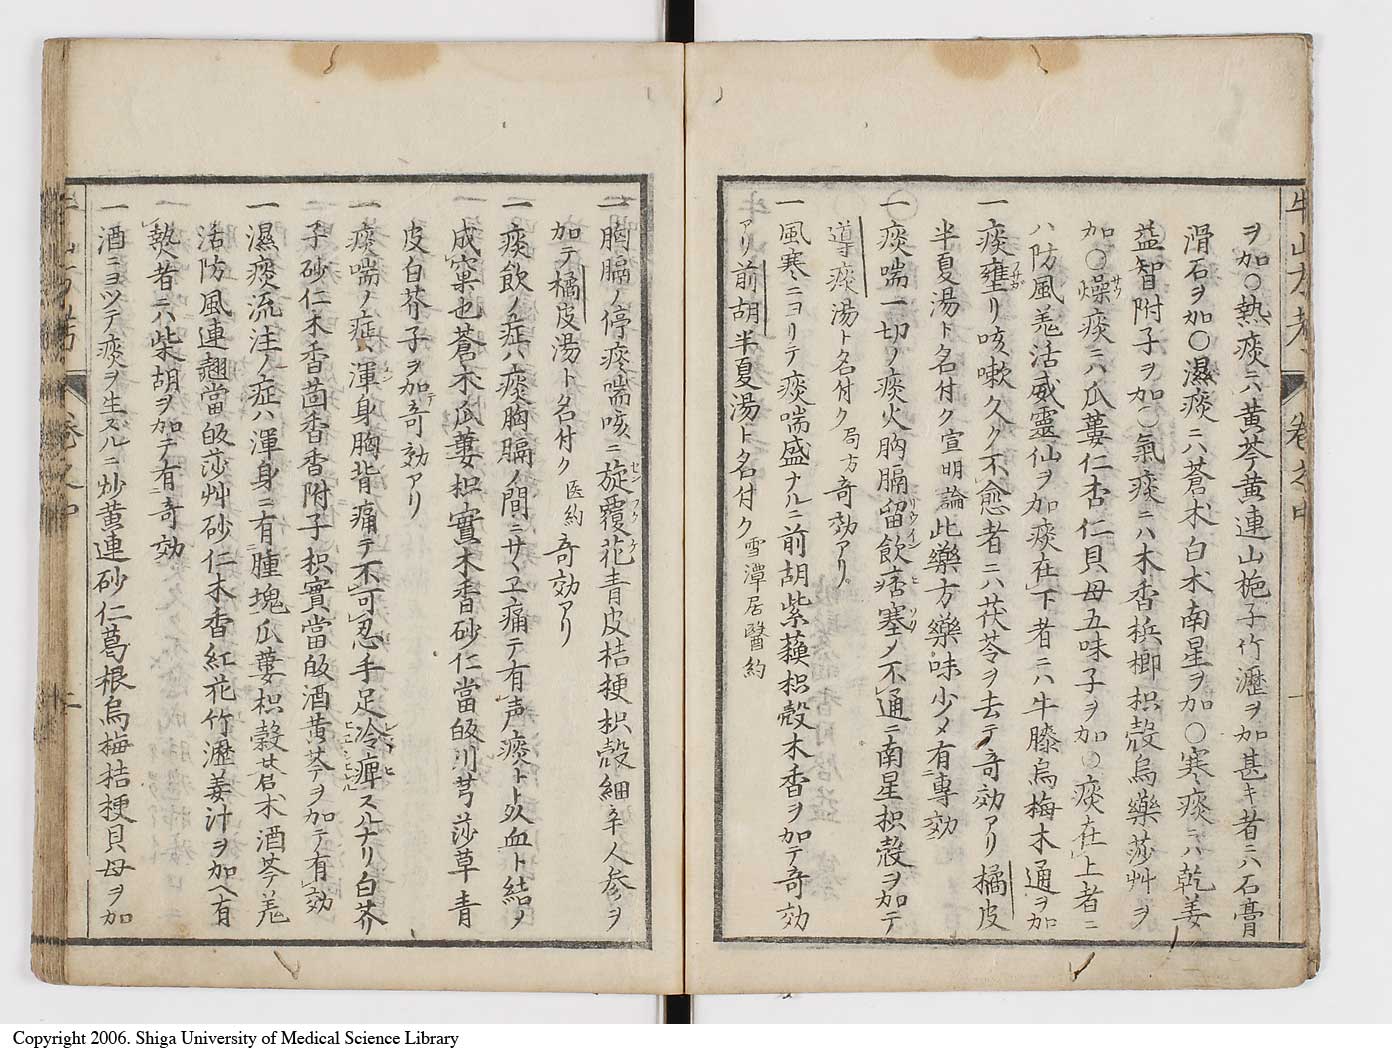 牛山方考 卷之中 一
ヲ加○熱痰ニハ黄芩黄連山梔子竹瀝ヲ加甚キ者ニハ石膏
滑石ヲ加○濕痰ニハ蒼朮白朮南星ヲ加○寒痰ニハ乾姜
益智附子ヲ加○氣痰ニハ木香梹榔枳殻烏藥莎艸ヲ
加○燥痰ニハ瓜蔞仁杏仁貝母五味子ヲ加○痰在上者ニ
ハ防風羗活威靈仙ヲ加痰在下者ニハ牛膝烏梅木通ヲ加
一痰壅リ咳嗽久ク不愈者ニハ茯苓ヲ去テ奇効アリ橘皮
半夏湯ト名付ク宣明論此藥方藥味少メ有專効
一痰喘一切ノ痰火胸膈留飲痞塞ノ不通ニ南星枳殻ヲ加テ
導痰湯ト名付ク局方奇効アリ
一風寒ニヨリテ痰喘盛ナルニ前胡紫蘓枳殻木香ヲ加テ奇効
アリ前胡半夏湯ト名付ク雪潭居醫約
一胸膈ノ停痰喘咳ニ旋覆花青皮桔梗枳殻細辛人参ヲ
加テ橘皮湯ト名付ク医約奇効アリ
一痰飲ノ症ハ痰胸膈ノ間ニサヽヱ痛テ有声痰ト瘀血ト結ノ
成窠也蒼朮瓜蔞枳實木香砂仁當皈川芎莎草青
皮白芥子ヲ加テ奇効アリ
一痰喘ノ症ハ渾身胸背痛テ不可忍手足冷痺スルナリ白芥
子砂仁木香茴香香附子枳實當皈酒黄芩ヲ加テ有効
一濕痰流注ノ症ハ渾身ニ有腫塊瓜蔞枳殻甘艸朮酒芩羗
活防風連翹當皈莎艸砂仁木香紅花竹瀝姜汁ヲ加ヘ有
熱者ニハ柴胡ヲ加テ有奇効
一酒ニヨツテ痰ヲ生スルニ炒黄連砂仁葛根烏梅桔梗貝母ヲ加
牛山方考 卷之中 二
Copyright 2006. Shiga University of Medical Science Library